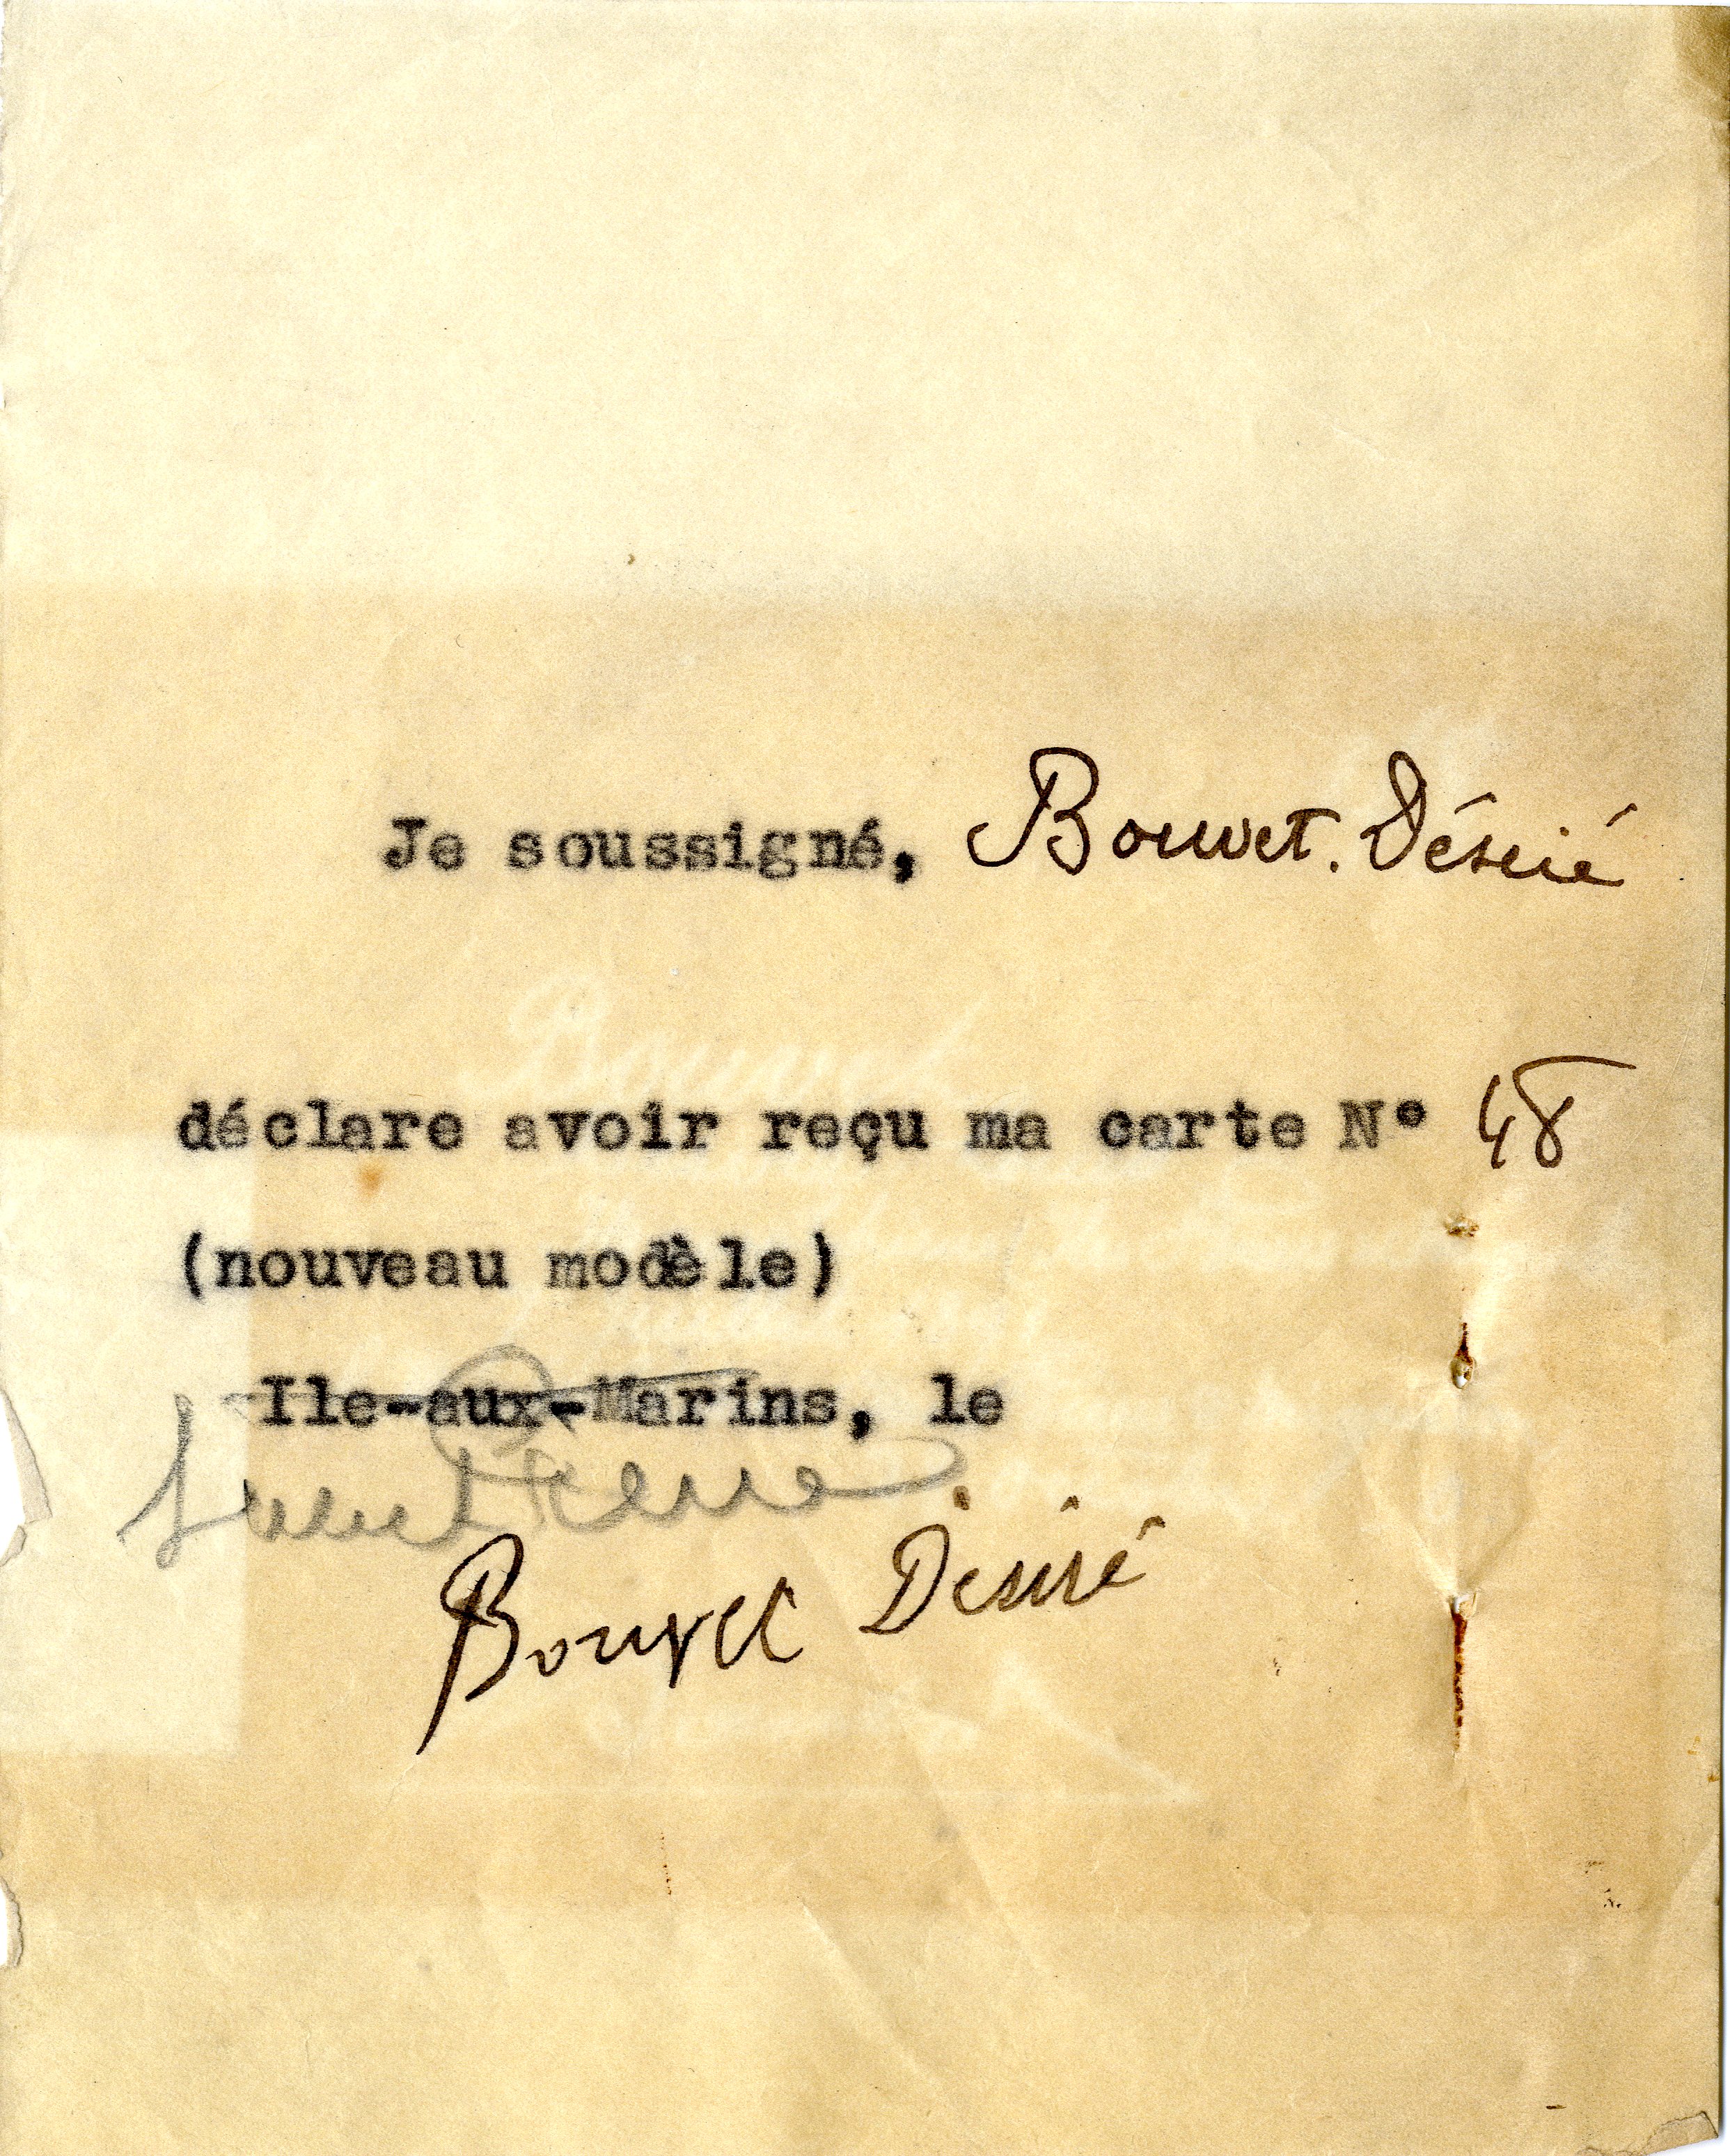 Je soussigné, Bouvet. Désiré
déclare avoir reçu ma carte N° 48
(nouveau modèle)
Ile-aux-Marins, le
Saint Pierre
Bouvet Désiré